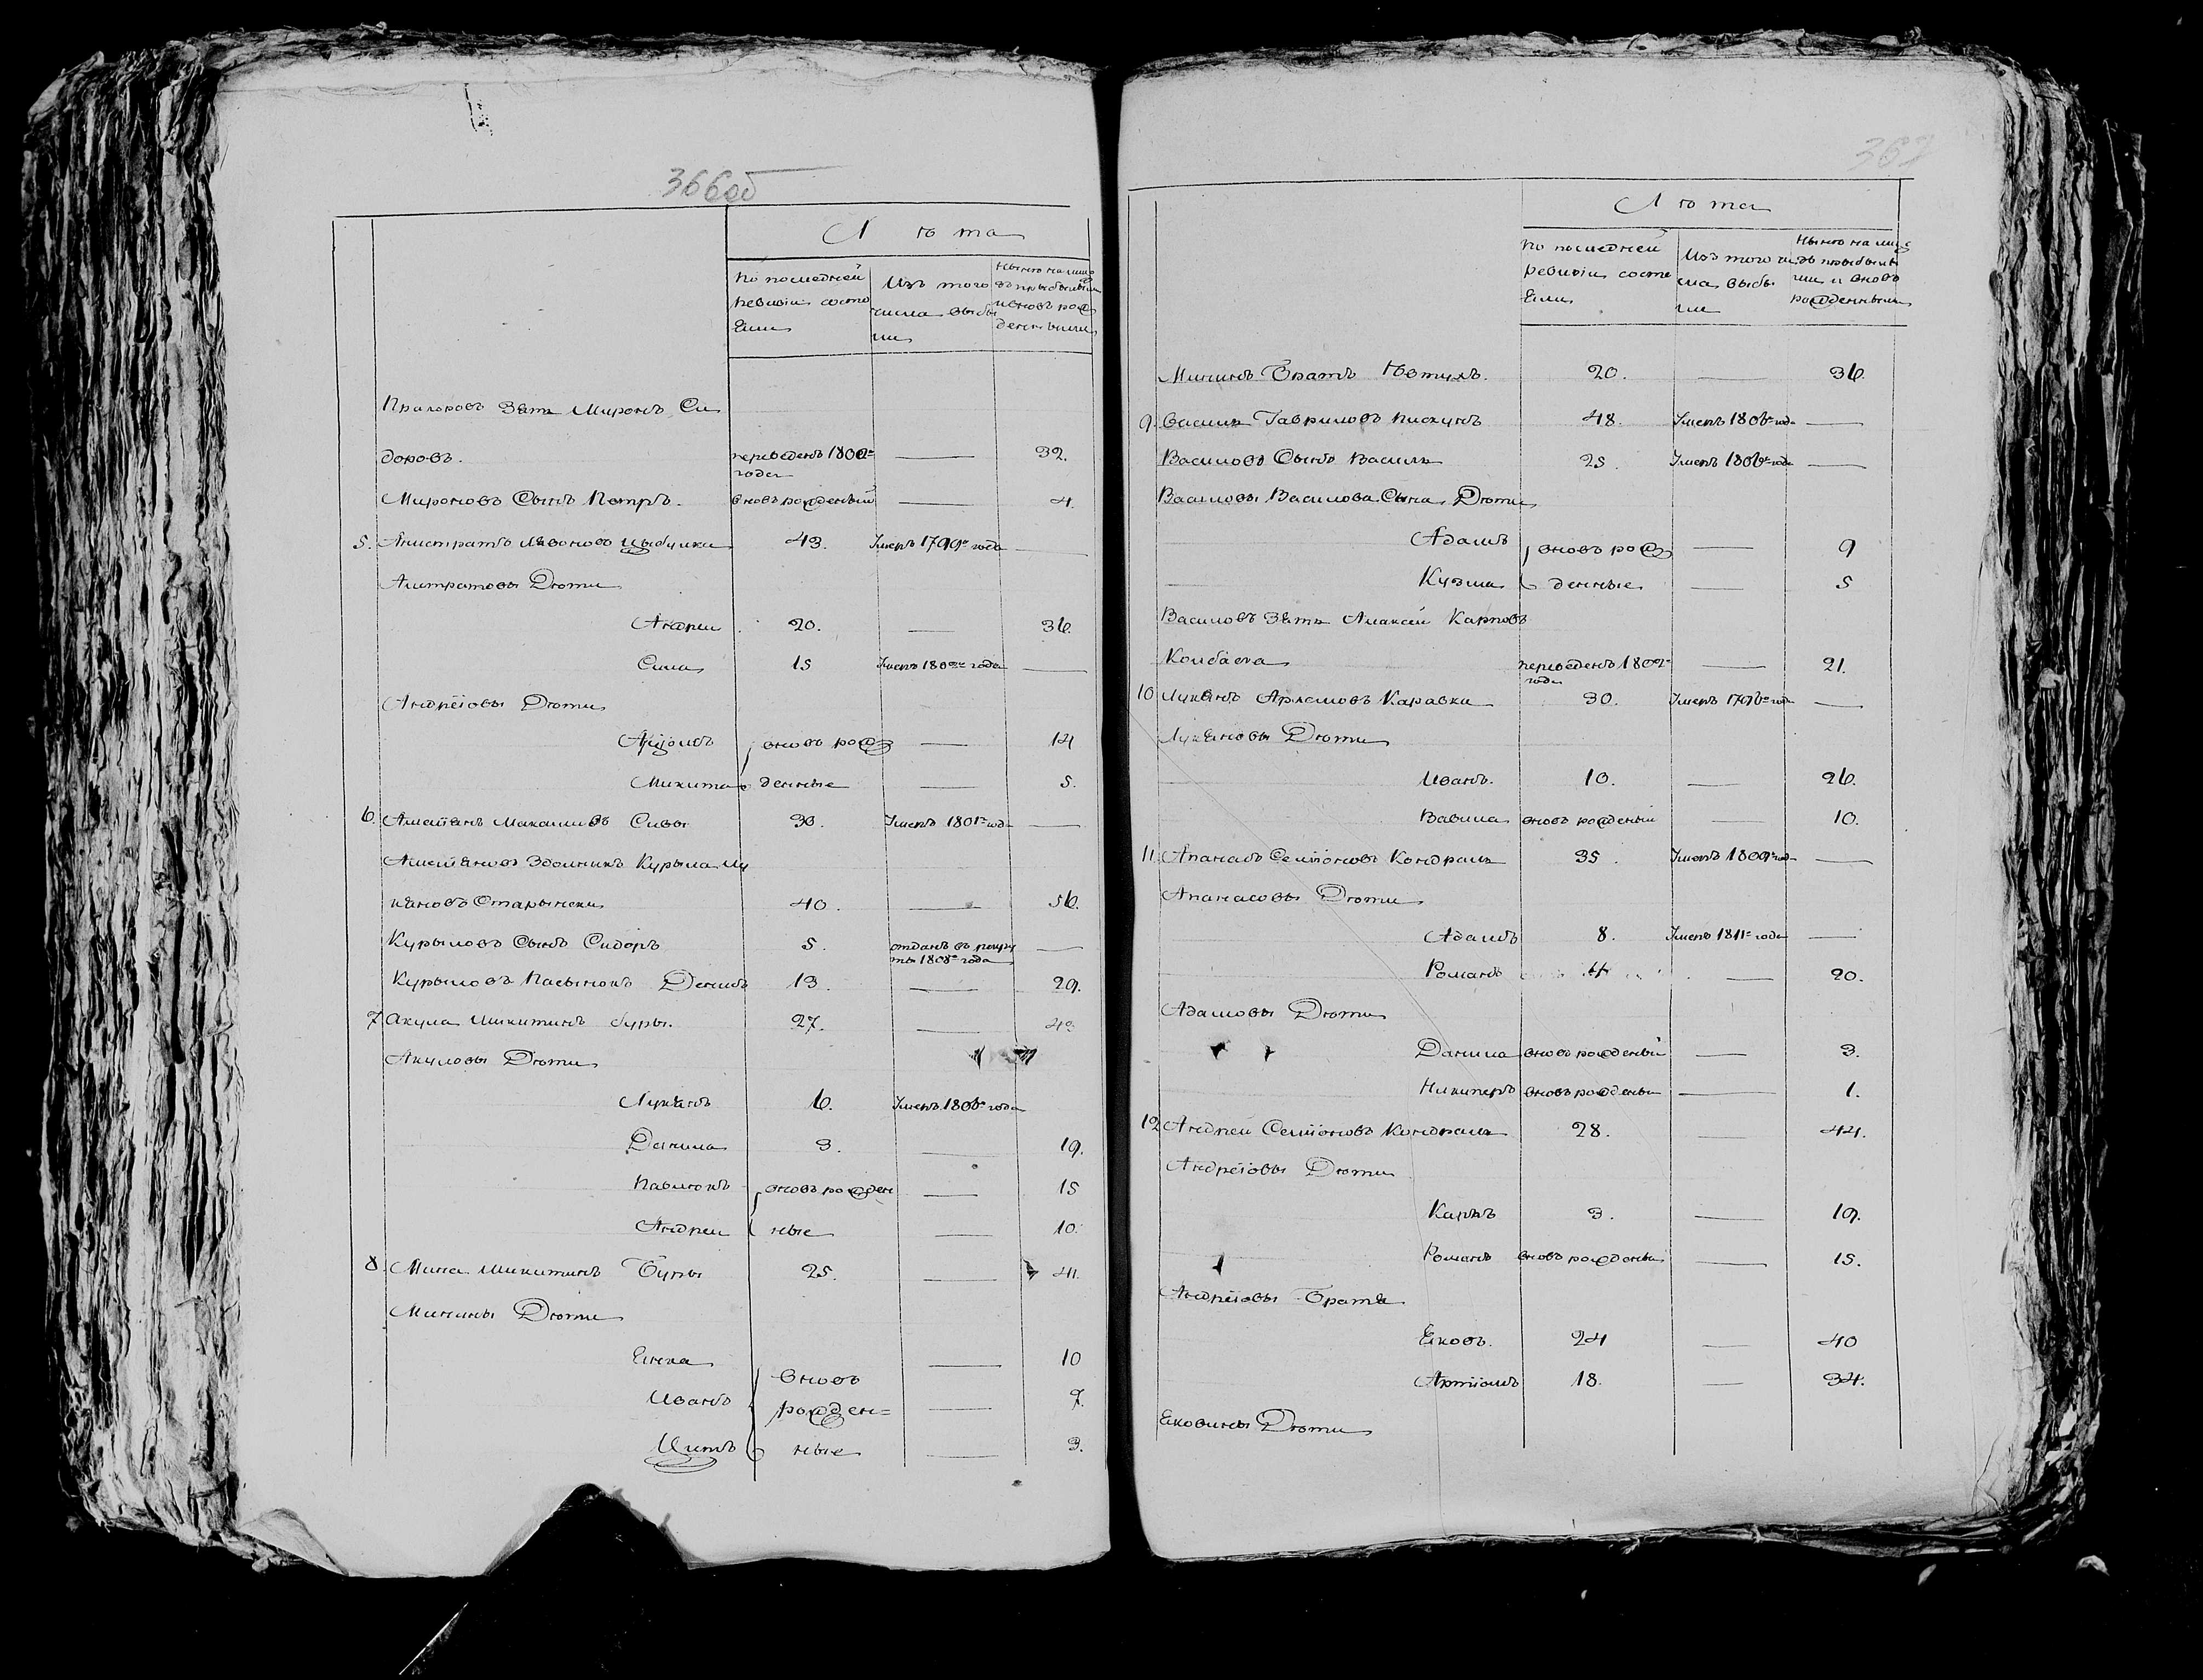 366об
Лѣта
По последней ревизіи состояли
Изъ того числа выбыли
Нынѣ на лицо съ прибылыми и вновь рожденными
Прахоровъ Зять Миронъ Си
доровъ. переведенъ 1802го года — 32.
Мироновъ Сынъ Петръ. вновь рожденый — 4.
5. Анистратъ Лявоновъ Цыбулька 43. Умеръ 1799го года —
Анистратовы Дѣти
Андрей 20. — 36.
Сила 15 Умеръ 180 года —
Андрѣевы Дѣти
вновь рож — 14
Микита денные — 5.
6. Амельянъ Максимовъ Сивы 30. Умеръ 1801го года —
Амельяновъ Здольникъ Курыла Лу
кяновъ Старынски 40. — 56.
Курыловъ Сынъ Сидоръ 5. отданъ въ рекру
ты 1808го года —
Курыловъ Пасынокъ Денисъ 13. — 29.
7. Акула Микитинъ Буры. 27. — 43
Акуловы Дѣти
Лукянъ 6. Умеръ 1806го года
Данила 3. — 19.
Павлюкъ вновь рожден — 15
Андрей ные — 10.
8. Мина Микитинъ Буры 25. — 41.
Минины Дѣти
— 10
вновь
Иванъ рожден= — 7.
Цитъ ные — 3.
367
Лѣта
По последней ревизіи состояли
Изъ того числа выбыли
Нынѣ на лицо съ прибылыми и вновь рожденными
Мининъ Братъ 20. — 36.
9. Василь Гавриловъ Пискунъ 48. Умеръ 1806го года —
Васильовъ Сынъ Василь 25. Умеръ 1806го года —
Васильовы Васильова Сына Дѣти
Адамъ вновь рож — 9
Кузма денные — 5
Васильовъ Зять Алаксей Карповъ
Колбаска переведенъ 1802го года — 21.
10. Лукянъ Арлемовъ Каравка 30. Умеръ 1796го года —
Лукяновы Дѣти
Иванъ. 10. — 26.
Вавила вновь рожденый — 10.
11. Апанасъ Семіоновъ Кондраль 35. Умеръ 1809го года —
Апанасовы Дѣти
Адамъ 8. Умеръ 1811го года —
Романъ 4 — 20.
Адамовы Дѣти
Данила вновь рожденый — 3.
Никиперъ вновь рожденый — 1.
12. Андрей Семіоновъ Кондраль 28. — 44.
Андреіовы Дѣти
Карпъ 3. — 19.
Романъ вновь рожденый — 15.
Андреіовы Братя
Яковъ. 24 — 40
Артіомъ 18. — 34.
Яковины Дѣти